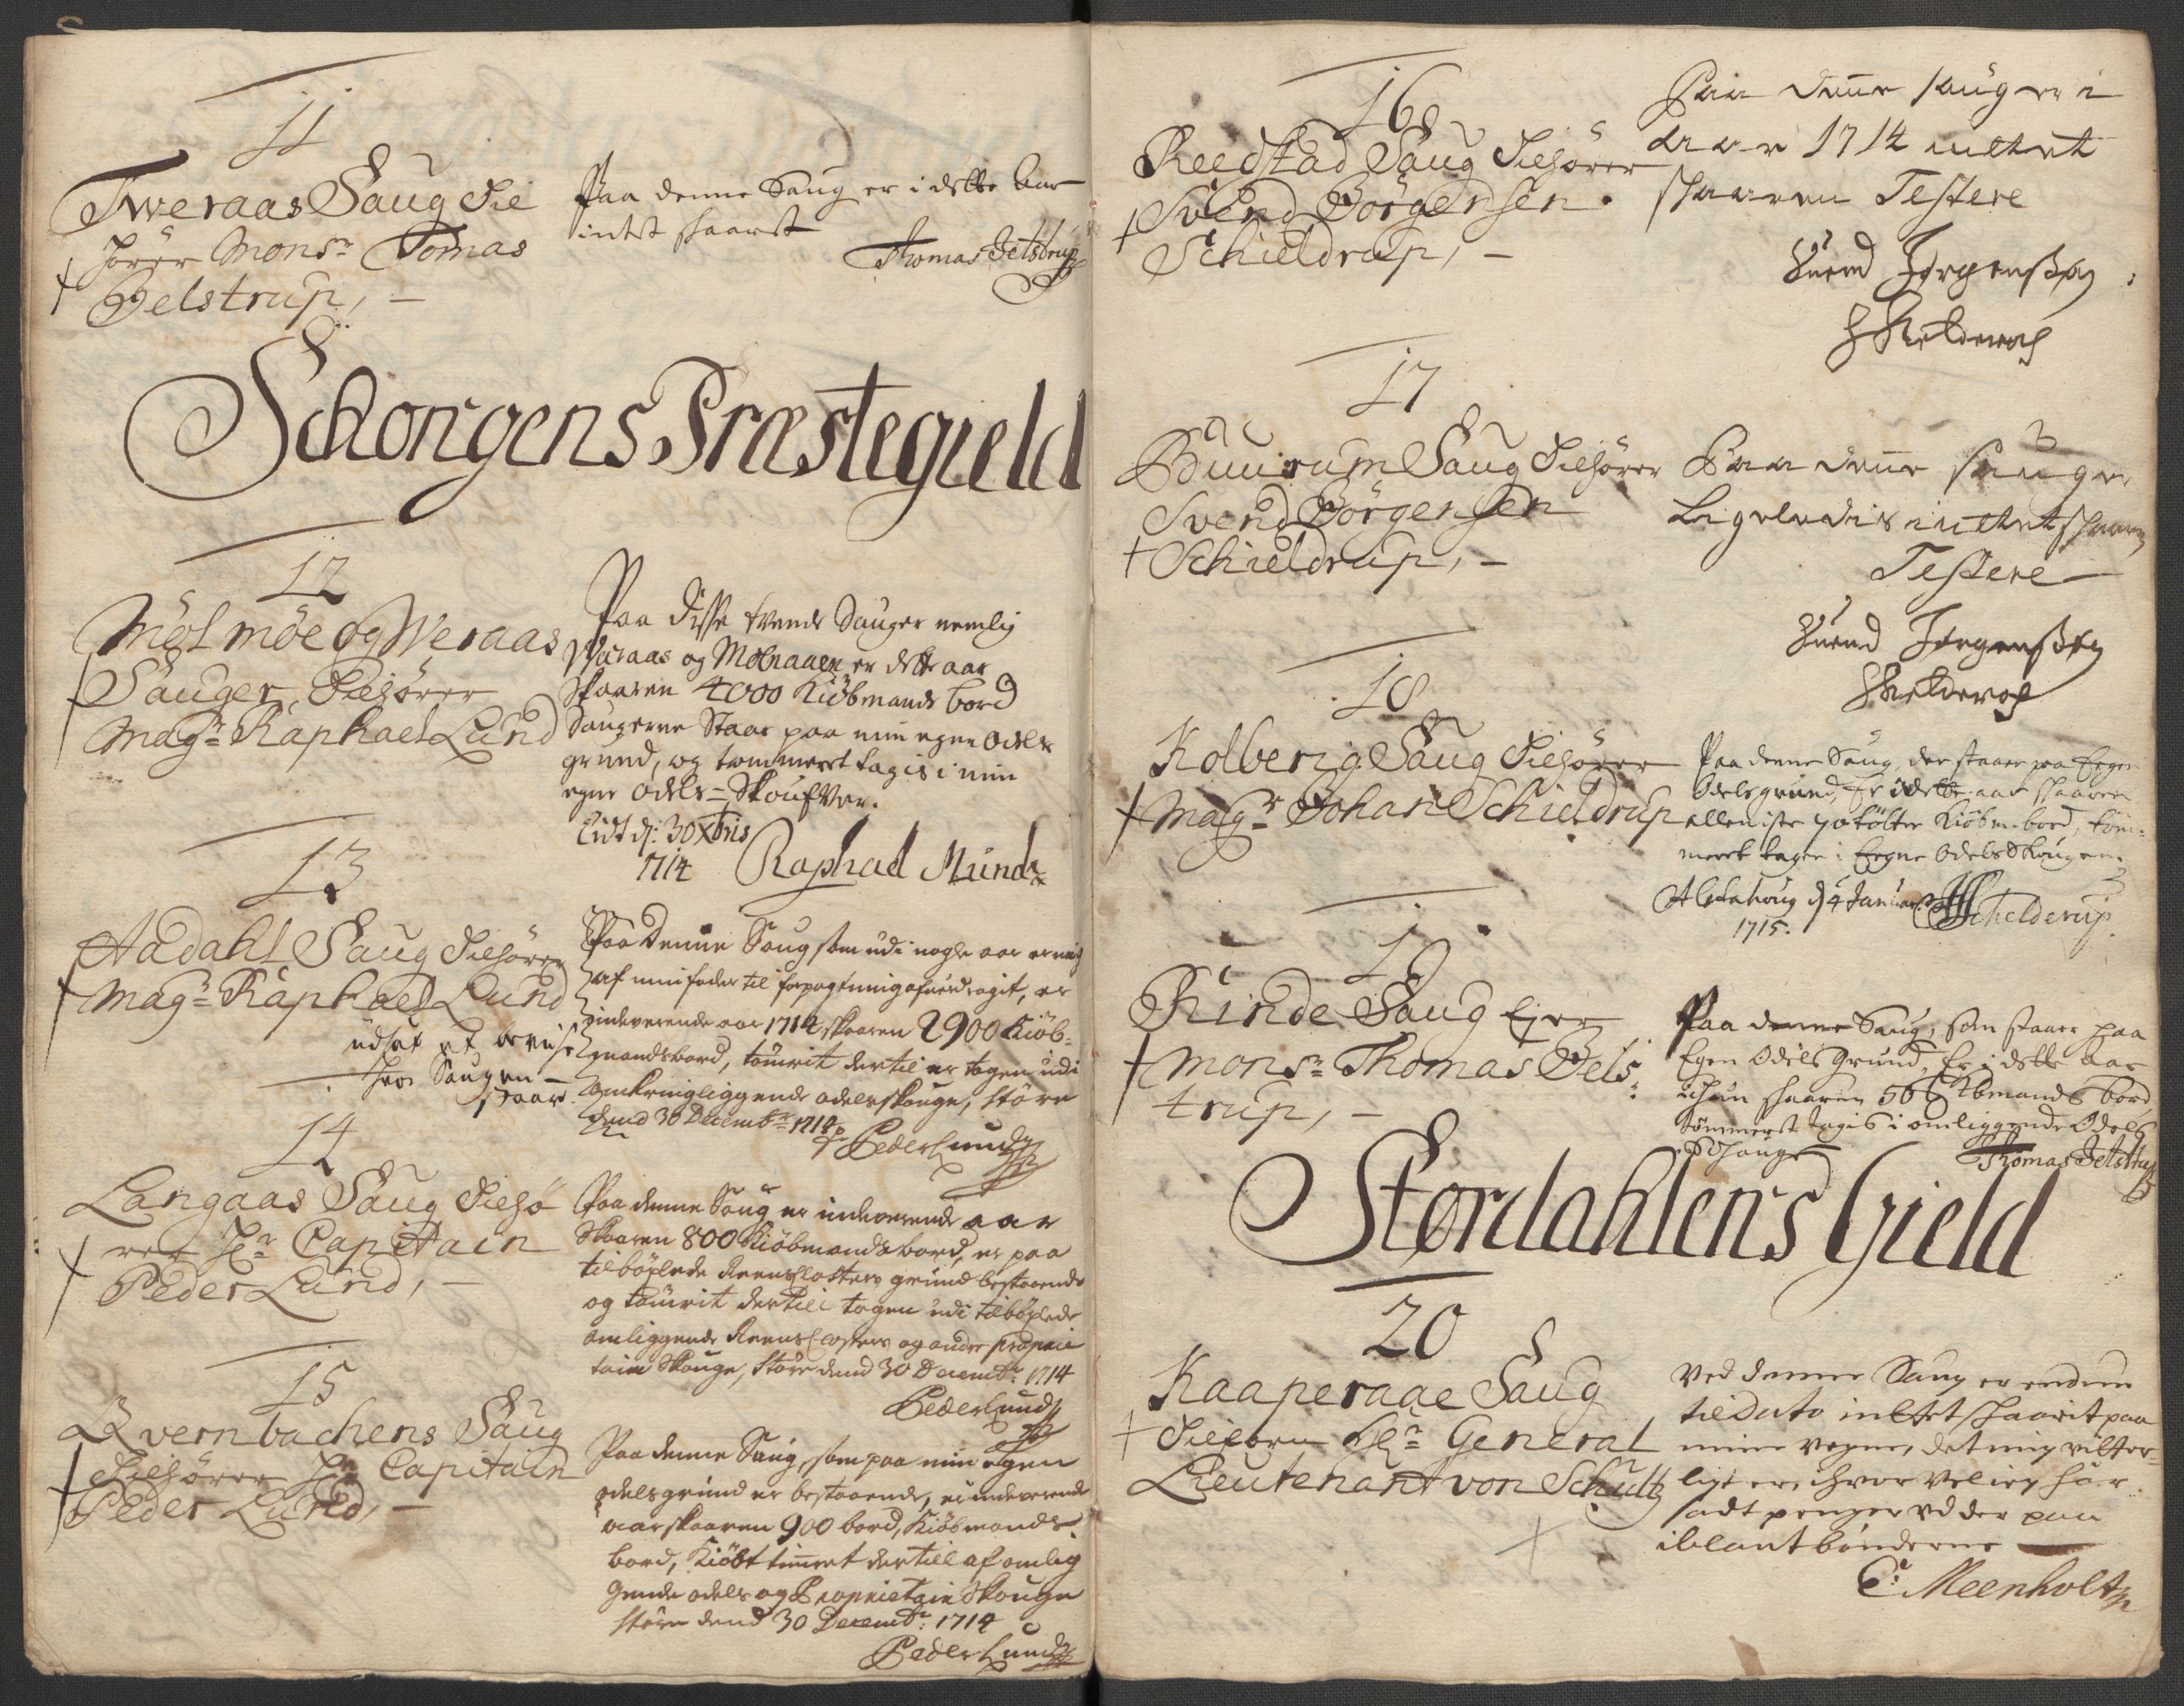 11
Tweraas Saug Til
hører Monsr Tomas
Jelstrup, —
Paa denne Saug er i dette Aar
intet skaaret
Thomas Jelstrup
Schongens Præstegield
12
Mølmöe og Weraas
Sauger, Tilhører
Magr Raphael Lund
Paa disse tvende Sauger nemlig
Waraas og Molnaaen er dette aar
skaaren 4000 Kiöbmands bord
Saugerne Staar paa min egen odels
grund, og tommeret tagis i min
egne odels = Skouf
Lidt d: 30 Xbris
1714 Raphael Munch
13
Aadahl Saug Tilhører
Magr Raphael Lund
udsat et bevise
hvor Saugen
staar
Paa Denne Saug som udi nogle aar er mig
af min fader til forpagtning ofuerdragit, er
indeverende aar 1714 skaaren 2900 Kiöb-
mandsbord, tömrit dertil er tagen udi
omkringliggende odelsskouge, störe
dend 30 Decembr 1714
Peder Lund
14
Langaas Saug Tilhö
rer Hr Capitain
Peder Lund, —
Paa denne Saug er indeverende aar
Skaaren 800 Kiöbmandsbord, er paa
tilböxlede Reensclosters grund bestaaende
og tömrit dertil tagen udi tilböxlede
omliggende Reensclosters og andre proprie
tair Skouge, Störe dend 30 Decembr: 1714
Peder Lund
15
Qvernbachens Saug
Tilhører Hr Capitain
Peder Lund, —
Paa denne Saug, som paa min egen
odelsgrund er bestaaende, er indeverende
aar skaaren 900 bord, Kiöbmands
bord, Kiöbt timret dertill af omlig
gende odels og Proprietair Skouge
störe dend 30 Decembr: 1714
Peder Lund
16
Reedstad Saug Tilhører
Svend Jörgensen
Schieldrup, —
Paa denne saug er i
aar 1714 intet
skaaren Testere
Suend Jørgenssøn
Schelderup
17
Buurum Saug Tilhører
Svend Jörgensen
Schieldrup, —
Paa denne sauger
Ligeledis intet skaaren
Testere
Suend Jørgenssøn
Schelderup
18
Kolberig Saug Tilhører
Magr Johan Schieldrup
Paa denne Saug, der staaer paa Eger
Odelsgrund, Er i dette aar skaaren
alleniste 70 tölter Kiöbm. bord, töm-
meret tagen i Egne Odels Skougen.
d 4 Januar
1715. Schelderup.
19
Rinde Saug Ejer
Monsr Thomas Jels-
trup, —
Paa denne Saug, som staaer paa
Egen Odels Grund, Er i dette Aar
ichun skaaren 566 Kbmands bord
Tömmeret tagis i omliggende Odels
Schouge
Thomas Jelstrup
Størdahlens Gield
20
Kaaperaae Saug
Tilhören Hr General
Lieutenant von Schultz
Ved denne Saug er endnu
til Dato intet skaarit paa
mine vegne, det mig vitter-
ligt er, ihvor vel ieg har
sadt penger ud der paa
iblant bönderne
C: Meenholtz